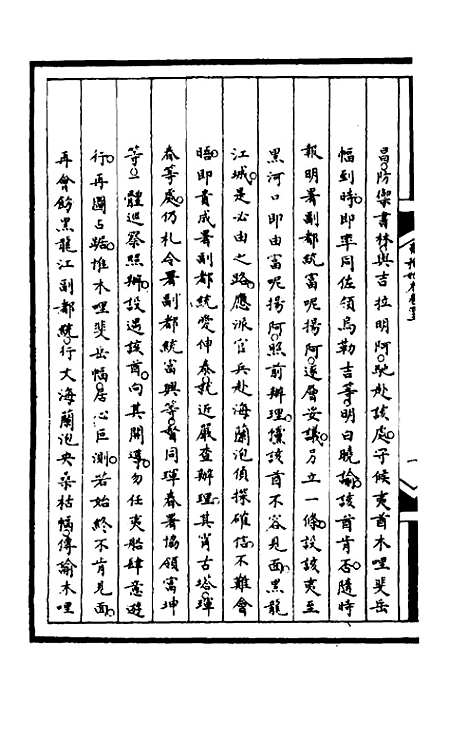 昌防禦書林與吉拉明阿馳赴該處守候夷酋木哩斐岳
幅到時即率同佐領烏勒吉等明白曉諭該酋肯否隨時
報明署副都統富呢揚阿逐層妥議另立一條設該夷至
黑河口即由富呢揚阿照前辦理儻該酋不容見面黑龍
江城是必由之路應派官兵赴海蘭泡偵探確信不難會
晤即責成署副都統愛伸泰就近嚴查辦理其肖古塔琿
春等處仍札令署副都統富興等督同琿春署協領富坤
等一體巡察照辦設遇該酋向其開導勿任夷船肆意遊
行再圖占踞惟木哩斐岳幅居心叵測若始終不肯見面
再會飭黑龍江副都統行文海蘭泡央桑枯幅傳諭木哩